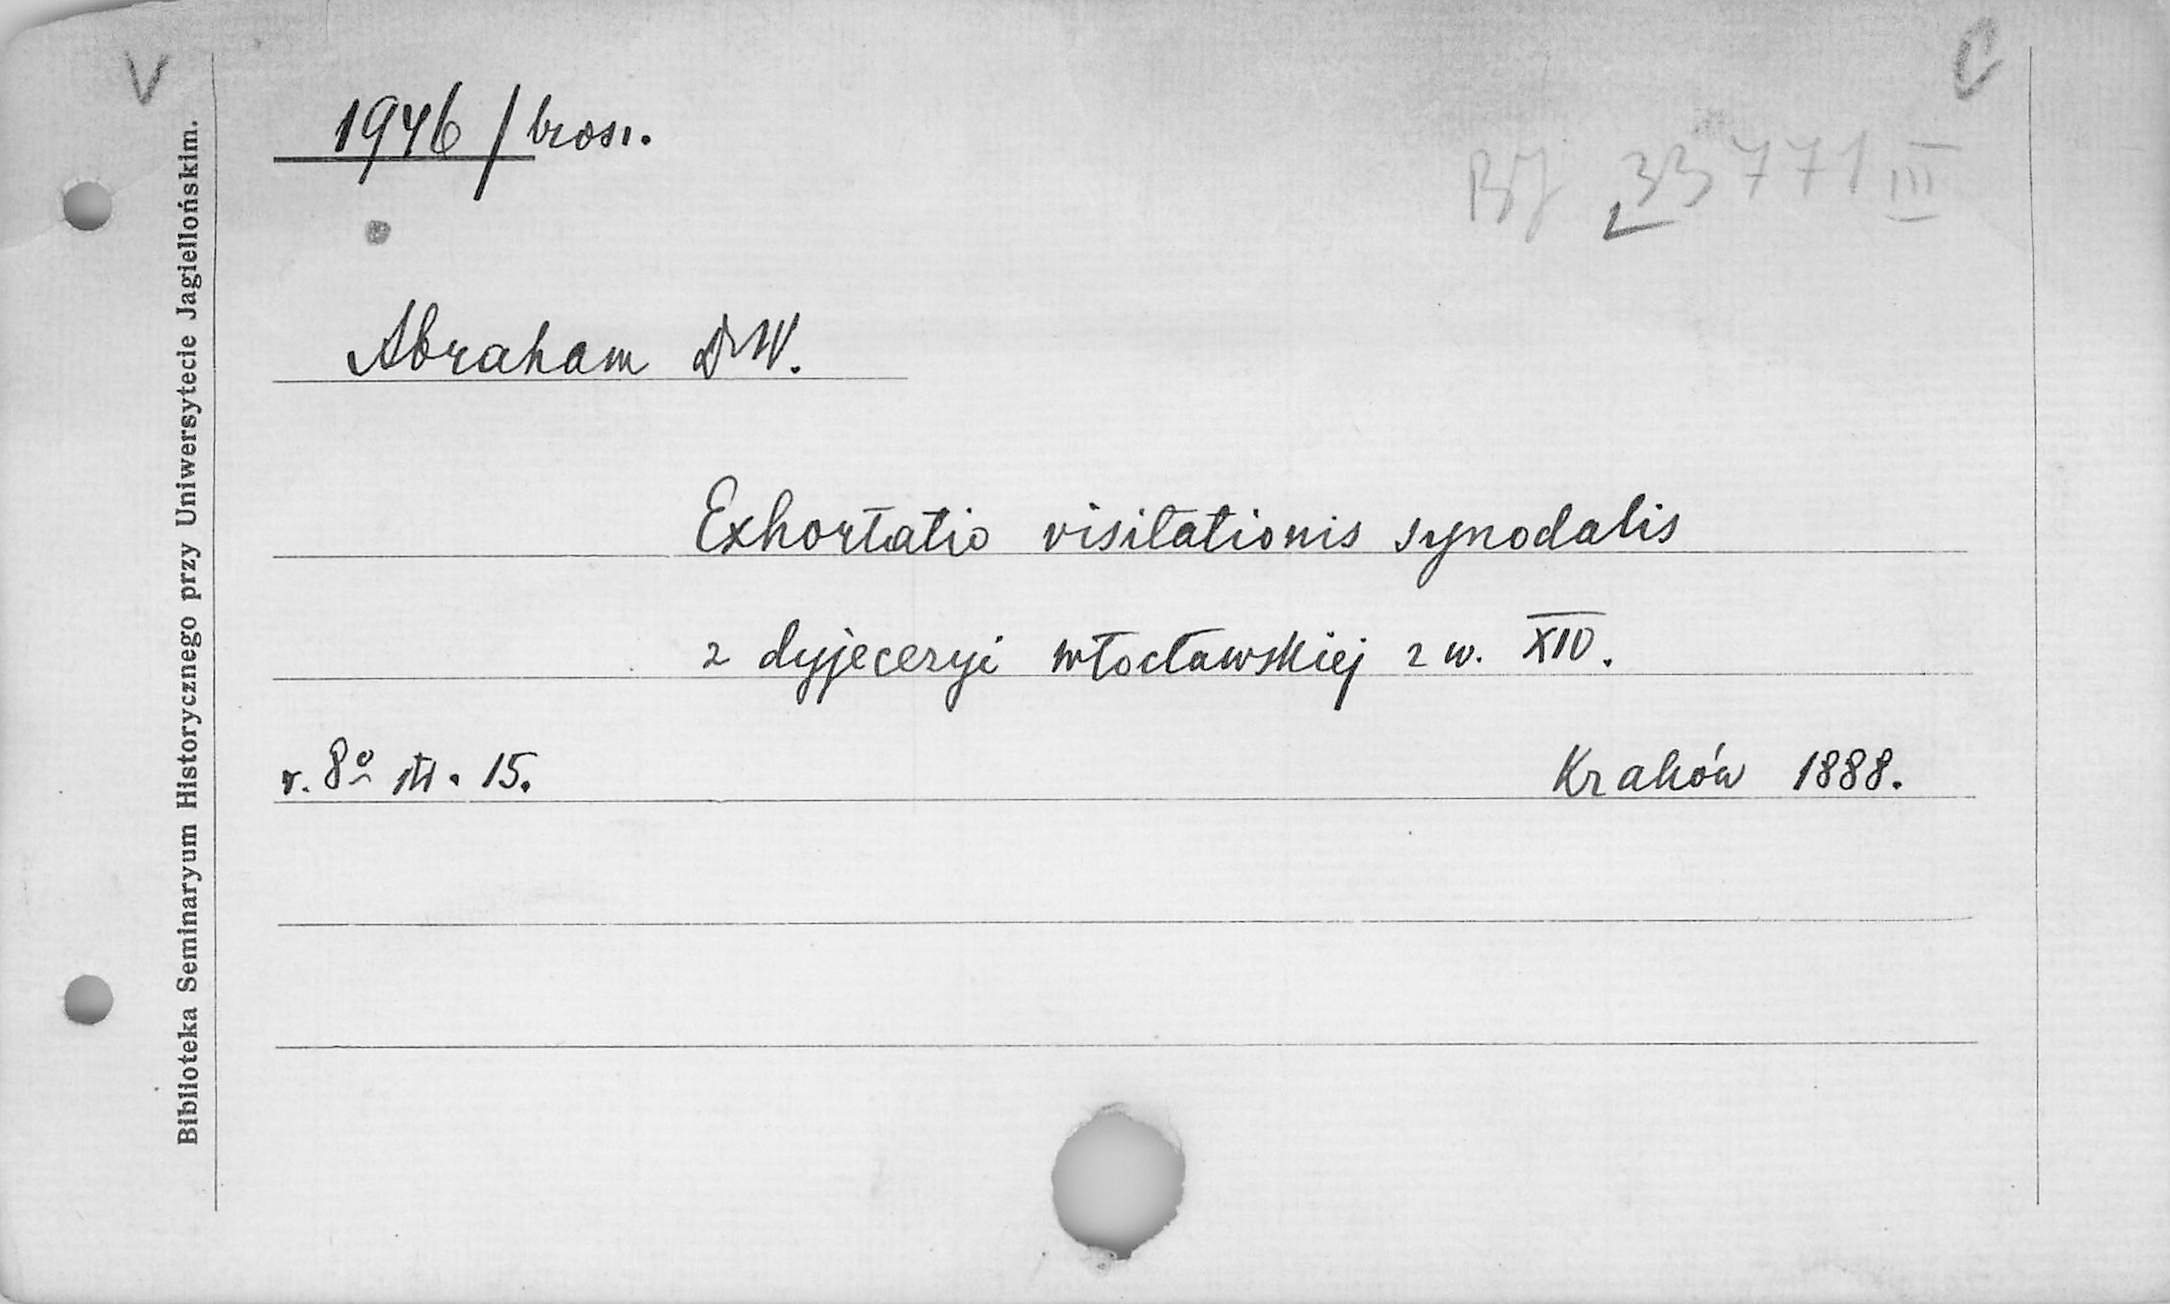 V
C
1946/bros.
BJ 33771 III
Abraham Dr W.
Exhortatio visitationis synodalis
z dyjecezyi włocławskiej z w. XIV.
w. 8º str. 15.
Kraków 1888.
Biblioteka Seminaryum Historycznego przy Uniwersytecie Jagiellońskim.